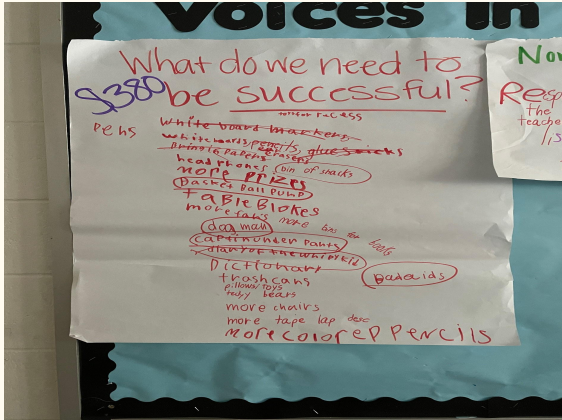 Voices in
What do we need to
be successful?
$380
toys for recess
pens
white board markers
whiteboards, pencils, glue sticks
Bring in papers erasers
headphones bin of snacks
more prizes
Basket Ball Pump
Table Blokes
more more bins for books
dog man
Captin under pants
diary of the whipy kid
Dictionary
Badaids
trashcans
pillows/toys
teddy bears
more chairs
more tape lap desc
more colored pencils
Now
Resp
the
teache